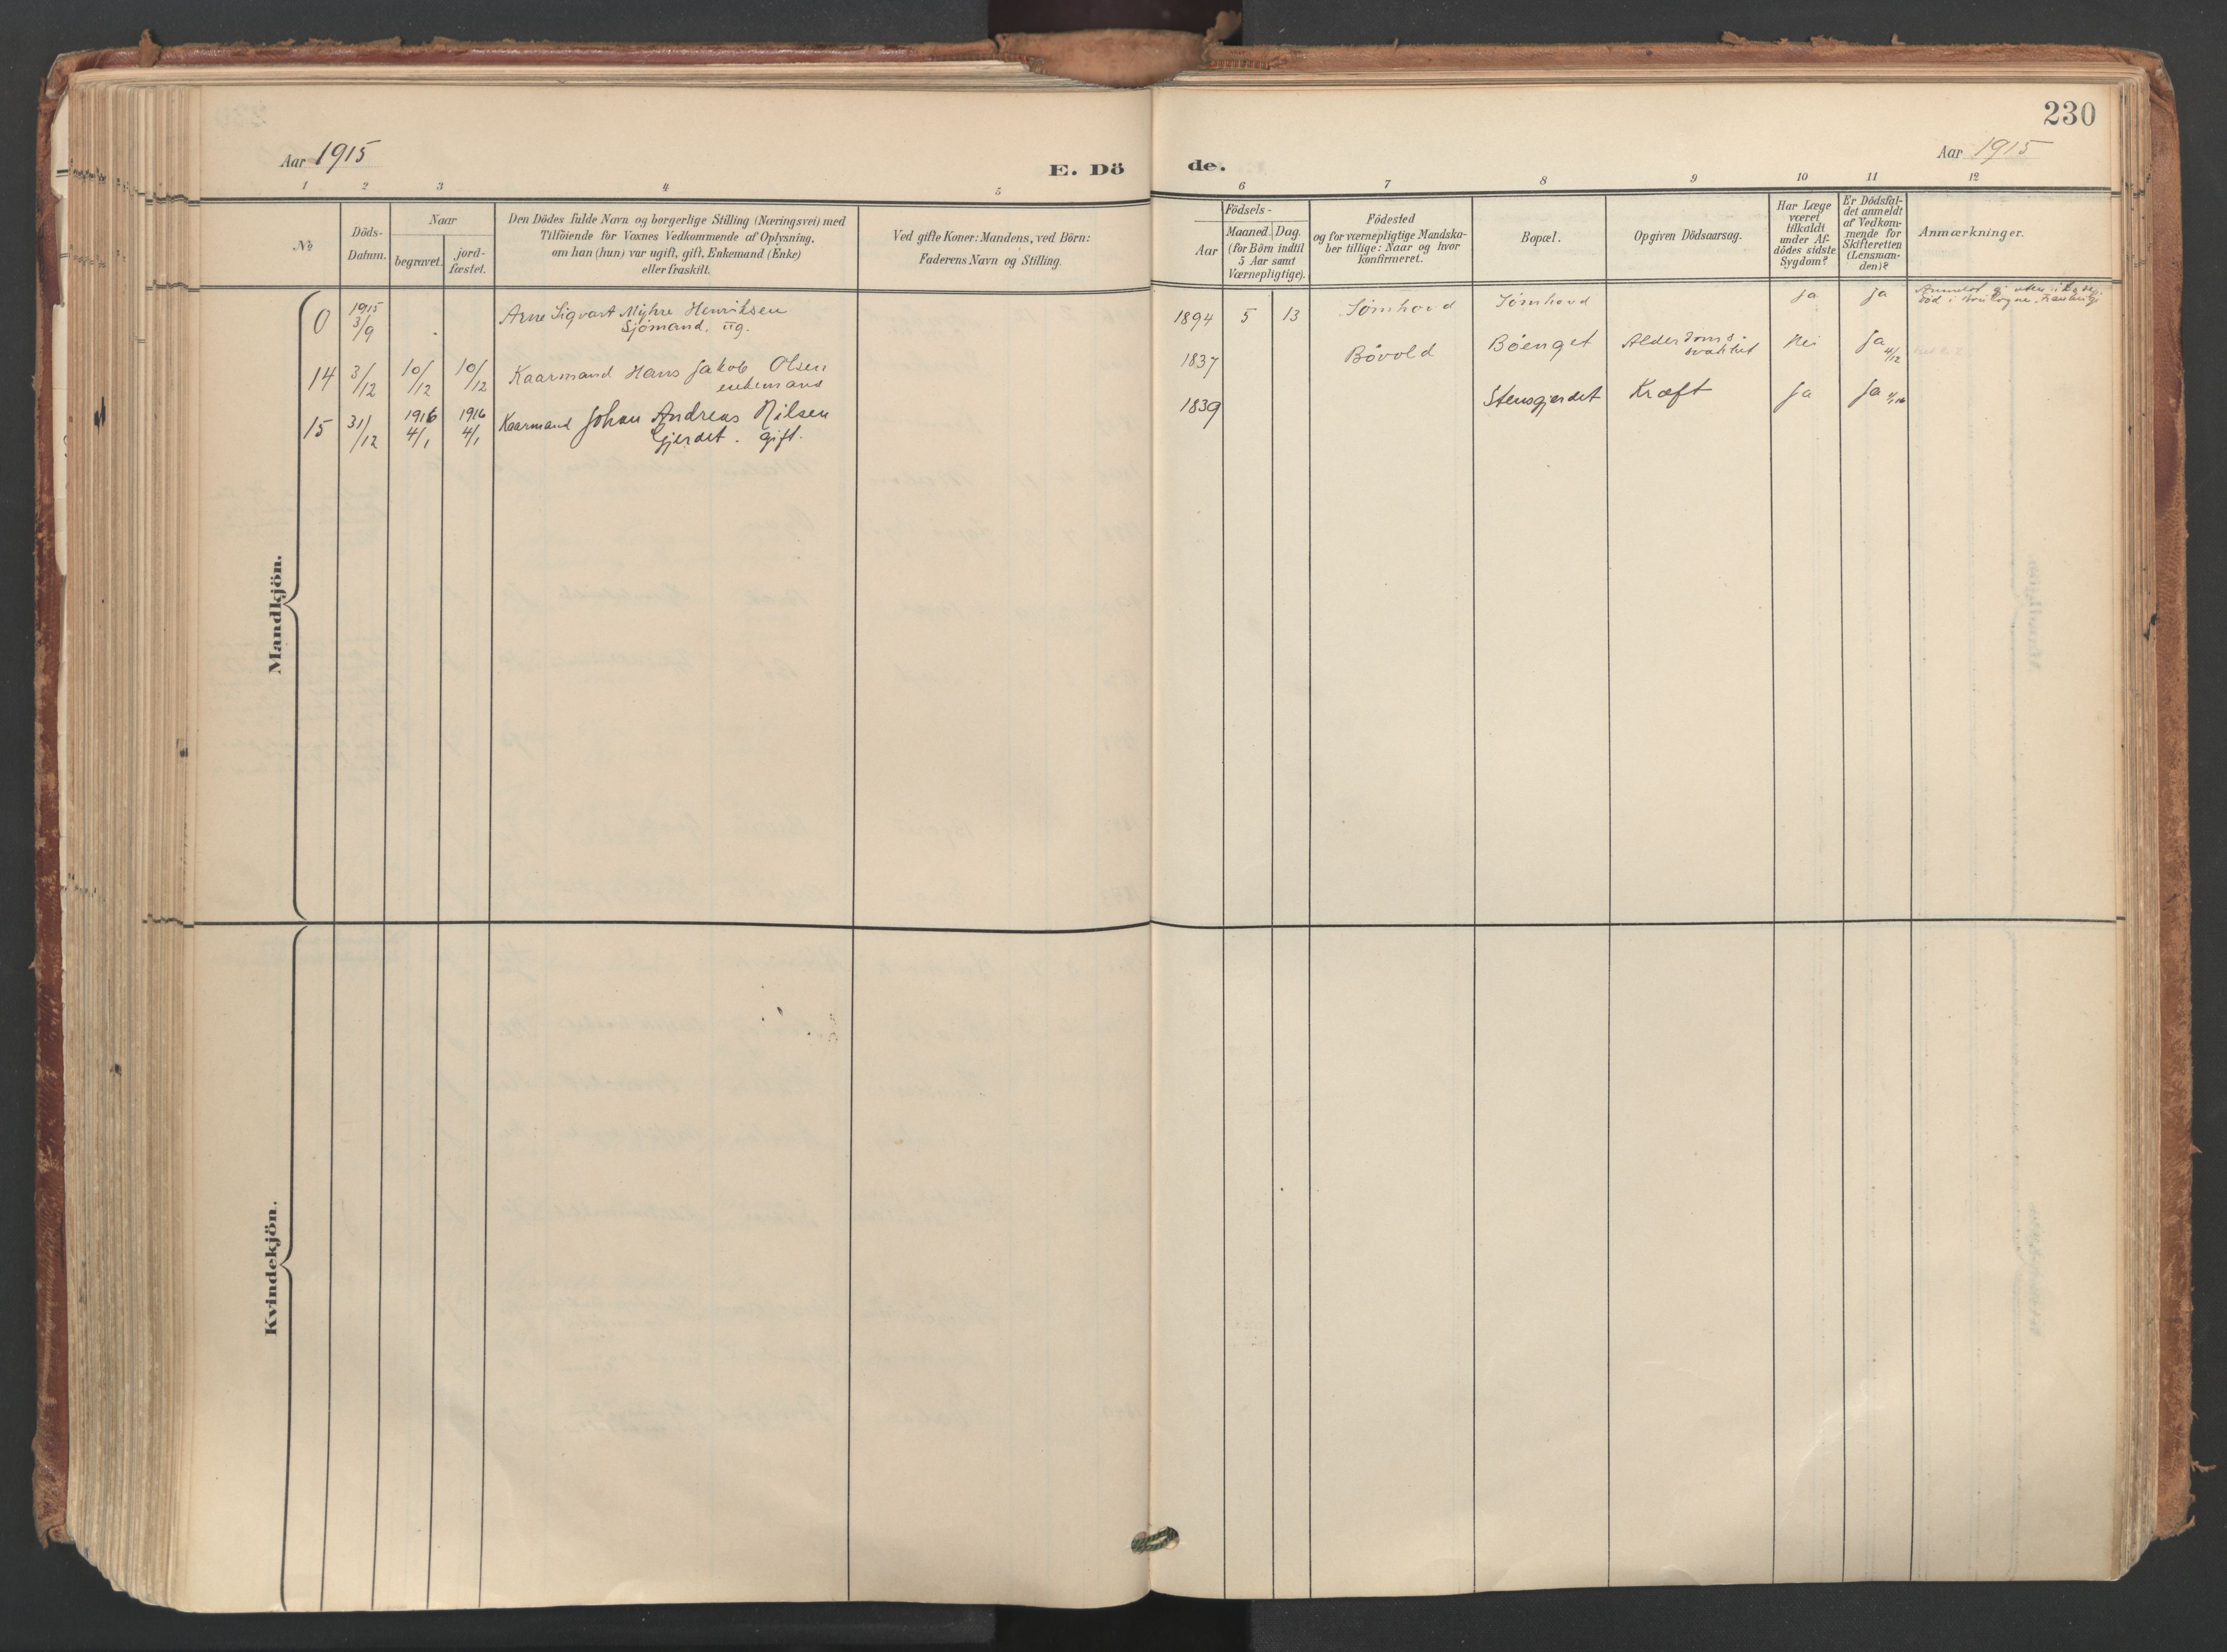 230
Aar 1915
E. Dö
de.
Aar 1915
1 2 3 4 5 6 7 8 9 10 11 12
No
Döds-
Datum.
Naar
begravet.
jord-
fæstet.
Den Dödes fulde Navn og borgerlige Stilling (Næringsvei) med
Tilföiende for Voxnes Vedkommende af Oplysning,
om han (hun) var ugift, gift, Enkemand (Enke)
eller fraskilt.
Ved gifte Koner: Mandens, ved Börn:
Faderens Navn og Stilling.
Födsels-
Aar
Maaned. Dag.
(for Börn indtil
5 Aar samt
Værnepligtige).
Födested
og for værnepligtige Mandska-
ber tillige: Naar og hvor
konfirmeret.
Bopæl.
Opgiven Dödsaarsag.
Har Læge
været
tilkaldt
under Af-
dödes sidste
Sygdom?
Er Dödsfal-
det anmeldt
af Vedkom-
mende for
Skifteretten
(Lensman-
den)?
Anmærkninger.
Mandkjön.
0 1915 3/9 Arne Sigvart Myhre Henriksen
Sjömand, ug.
1894 5 13 Tömhovd Tömhovd Ja Ja
14 3/12 10/12 10/12 Kaarmand Hans Jakob Olsen
enkemand
1837 Bövold Böenget Alderdoms- Nei Ja 4/12
15 31/12 1916 4/1 1916 4/1 Kaarmand Johan Andreas Nilsen
Gjerdet. gift.
1839 Stensgjerdet Kræft Ja Ja
Kvindekjön.